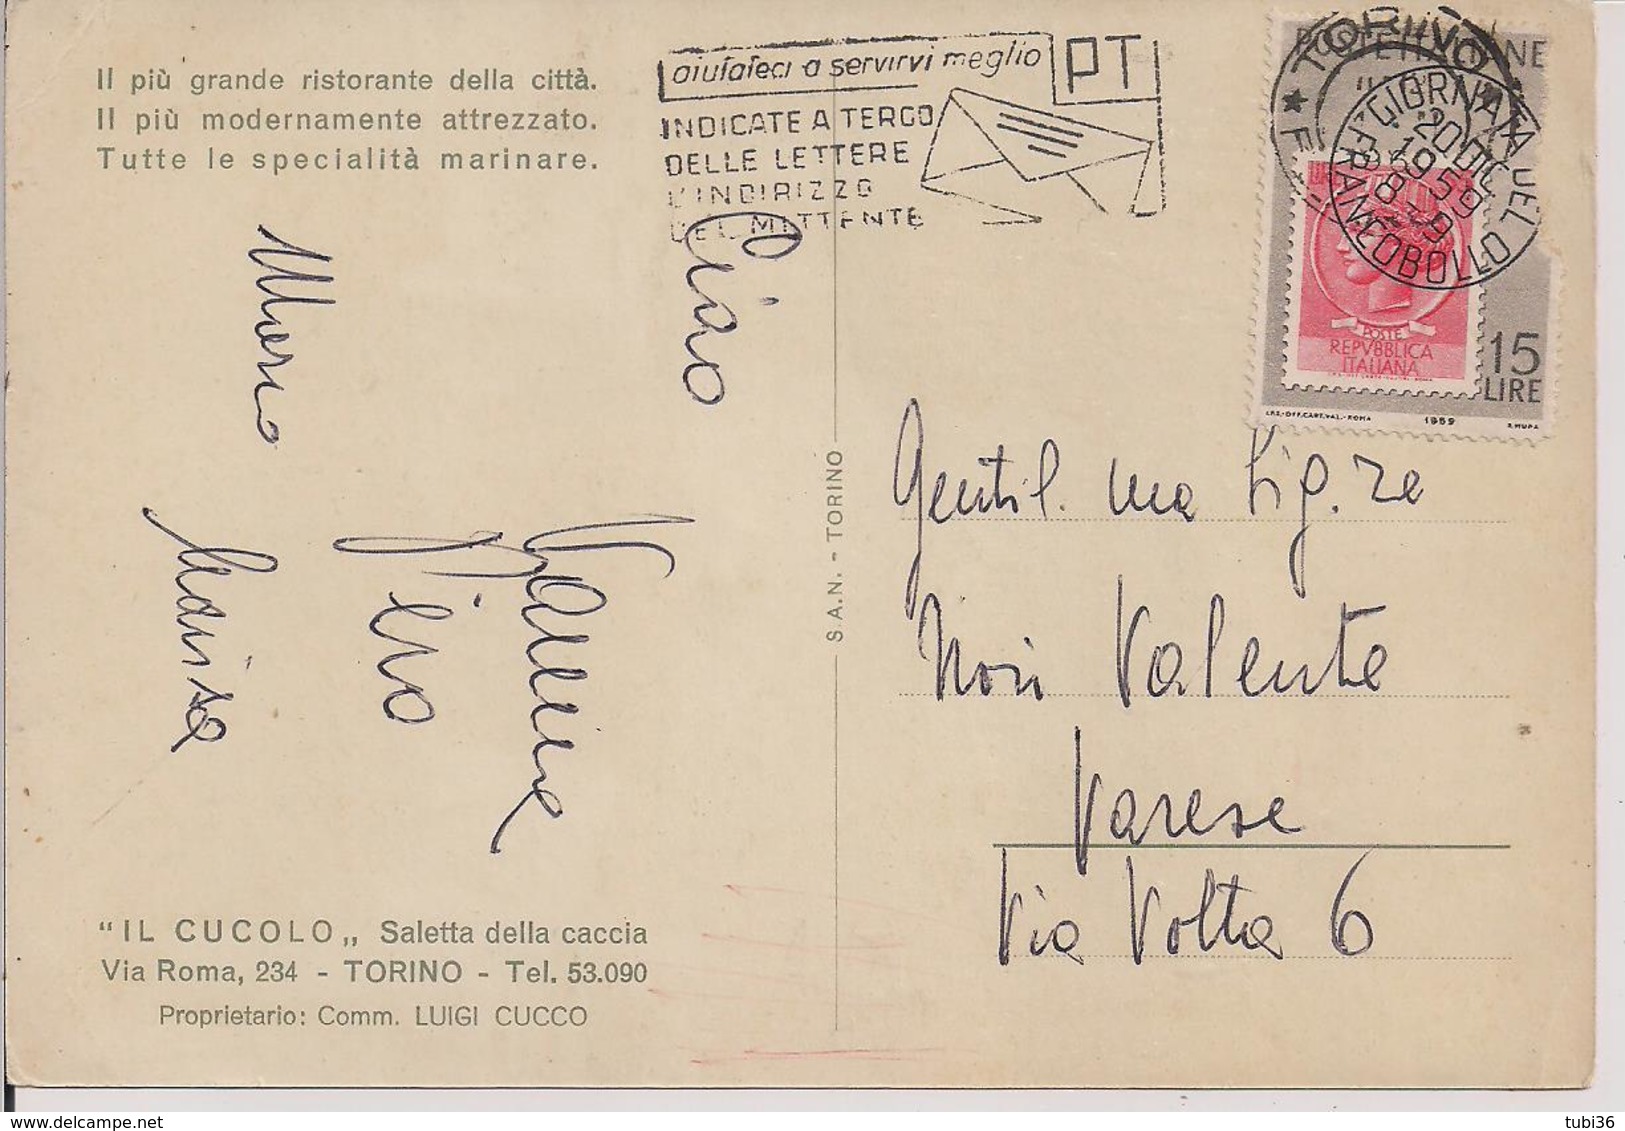 Il più grande ristorante della città.
Il più modernamente attrezzato.
Tutte le specialità marinare.
aiutateci a servirvi meglio
PT
INDICATE A TERGO
DELLE LETTERE
L'INDIRIZZO
DEL MITTENTE
TORINO
GIORNATA DEL FRANCOBOLLO
20 DIC
1959
POSTE ITALIANE
POSTE
REPVBBLICA
ITALIANA
15
LIRE
I.P.S.-OFF.CART.VAL.-ROMA 1959 R.MURA
Ciao
Mario
Piro
Marisa
S.A.N. - TORINO
Gentil.ma Sig.ra
Nori Valente
Varese
Via Volta 6
"IL CUCOLO„ Saletta della caccia
Via Roma, 234 - TORINO - Tel. 53.090
Proprietario: Comm. LUIGI CUCCO
tubi36